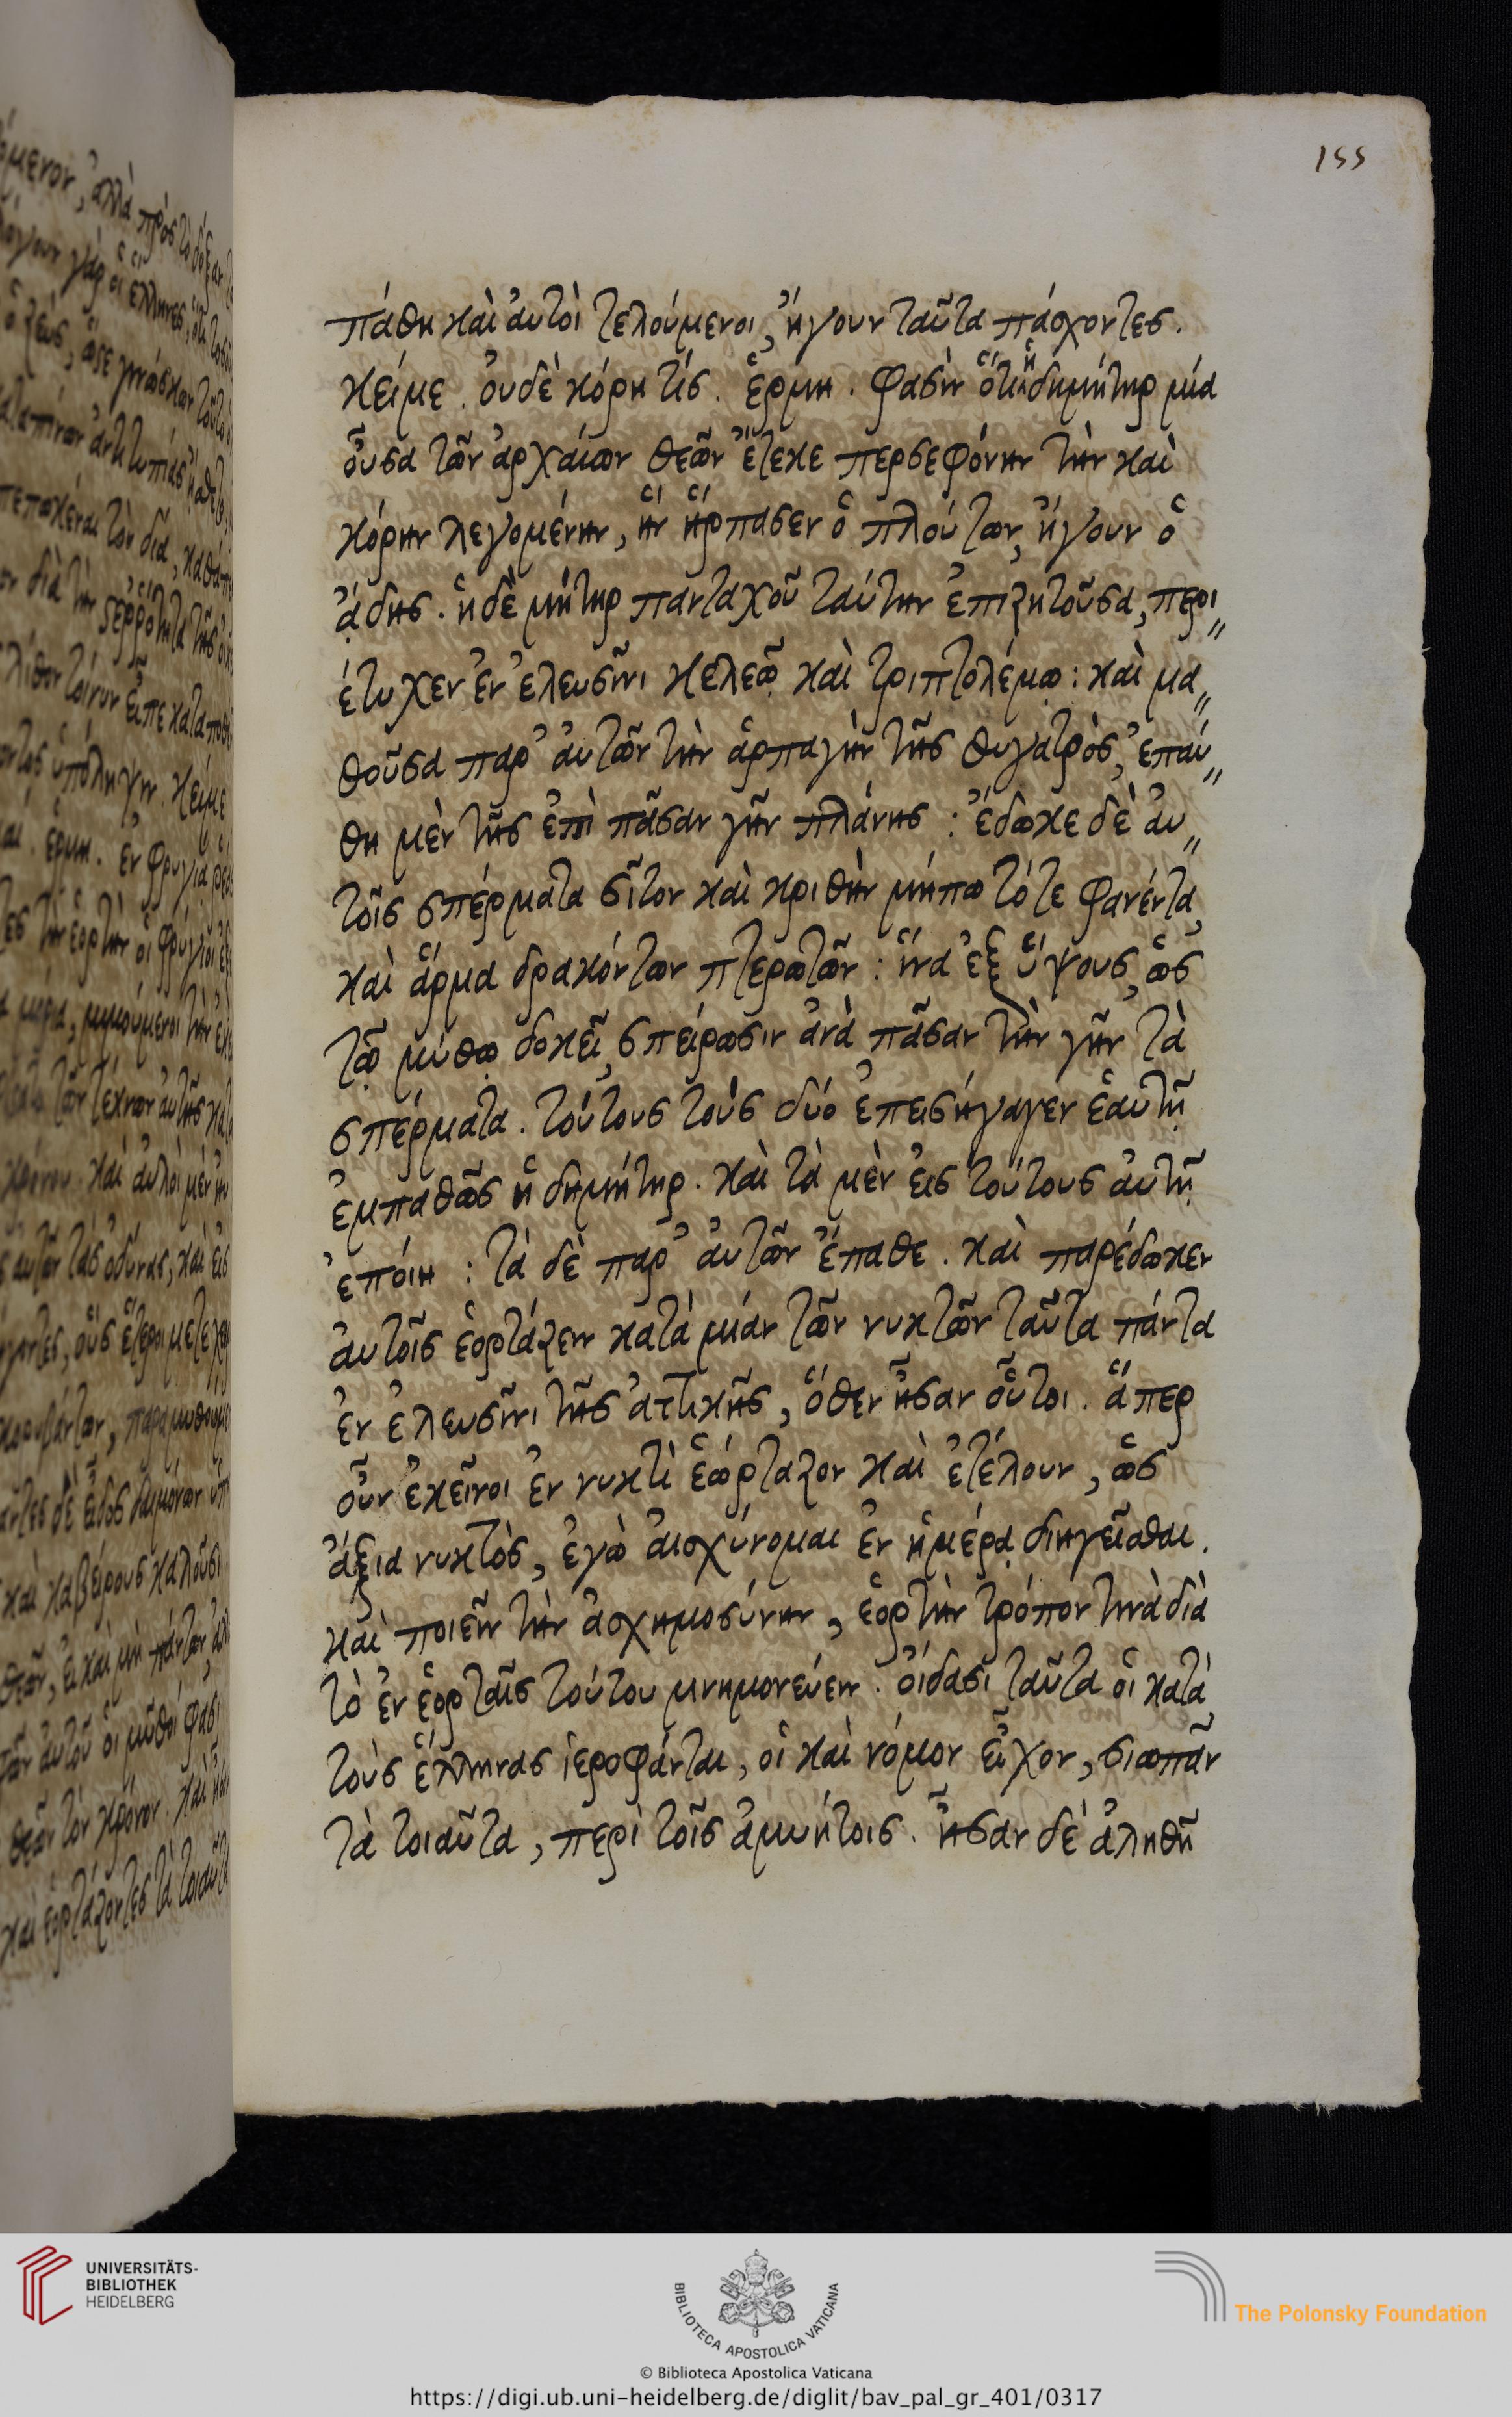 155
πάθη καὶ ἀυτοὶ τελούμενοι, ἤγουν ταῦτα πάσχοντες.
κείμε. ὀυδὲ κόρη τίς. ἑρμη. φασὶν ὅτι ἡ δημήτηρ μία
ὀῦσα τῶν ἀρχαίων θεῶν ἔτεκε περσεφόνην τὴν καὶ
κόρην λεγομένην, ἣν ἥρπασεν ὁ πλούτων, ἤγουν ὁ
ἅδης. ἡ δὲ μήτηρ πανταχοῦ ταύτην ἐπιζητοῦσα, περι〃
έτυχεν ἐν ἐλευσῖνι κελεῶ καὶ τριπτολέμω: καὶ μα〃
θοῦσα παρ' ἀυτῶν τὴν ἁρπαγὴν τῆς θυγατρὸς, ἐπαύ〃
θη μὲν τῆς ἐπὶ πᾶσαν γῆν πλάνης: ἔδωκε δὲ ἀυ〃
τοῖς σπέρματα σῖτον καὶ κριθὴν μήπω τότε φανέντα,
καὶ ἅρμα δρακόντων πτερωτῶν: ἵνα ἐξ ὕψους, ὡς
τῶ μύθω δοκεῖ, σπείρωσιν ἀνὰ πᾶσαν τὴν γῆν τὰ
σπέρματα. τούτους τοὺς δύο ἐπεισήγαγεν ἑαυτῆ
ἐμπαθῶς ἡ δημήτηρ. καὶ τὰ μὲν ἐις τούτους ἀυτῆ
ἐποίη: τὰ δὲ παρ' ἀυτῶν ἔπαθε. καὶ παρέδωκεν
ἀυτοῖς ἑορτάζειν κατὰ μίαν τῶν νυκτῶν ταῦτα πάντα
ἐν ἐλευσῖνι τῆς ἀττικῆς, ὅθεν ἦσαν οὗτοι. ἅπερ
οὖν ἐκεῖνοι ἐν νυκτὶ ἑώρταζον καὶ ἐτέλουν, ὡς
ἄξια νυκτὸς, ἐγὼ ἀισχύνομαι ἐν ἡμέρᾳ διηγεῖσθαι.
καὶ ποιεῖν τὴν ἀσχημοσύνην, ἑορτὴν τρόπον τινὰ διὰ
τὸ ἐν ἑορταῖς τούτου μνημονεύειν. ὀίδασι ταῦτα ὁι κατὰ
τοὺς ἕλληνας ἱεροφάνται, ὁι καὶ νόμον εἶχον, σιωπᾶν
τὰ τοιαῦτα, περὶ τοῖς ἀμυήτοις. ἦσαν δὲ ἀληθῆ
UNIVERSITÄTS-
BIBLIOTHEK
HEIDELBERG
BIBLIOTECA APOSTOLICA VATICANA
The Polonsky Foundation
© Biblioteca Apostolica Vaticana
https://digi.ub.uni-heidelberg.de/diglit/bav_pal_gr_401/0317